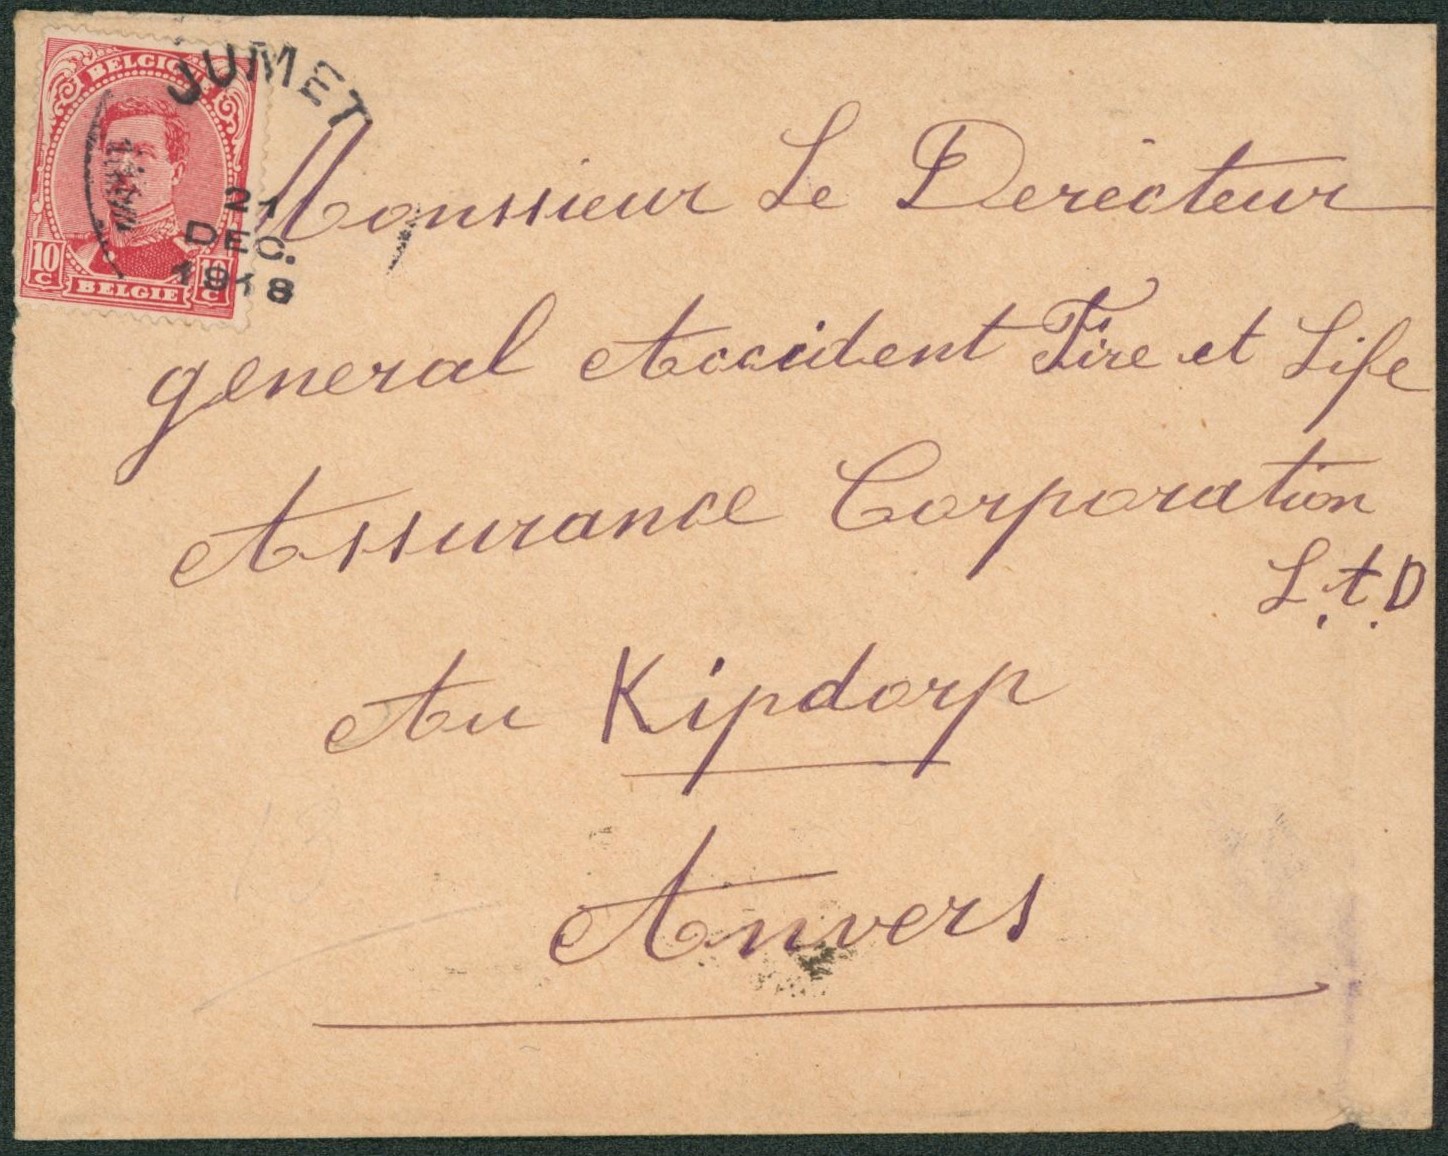 BELGIQUE
10 C
10 C
BELGIE
JUMET
21
DEC.
1918
Monsieur Le Derecteur
general Accident Fire et Life
Assurance Corporation
L.t.D
Au Kipdorp
Anvers
13